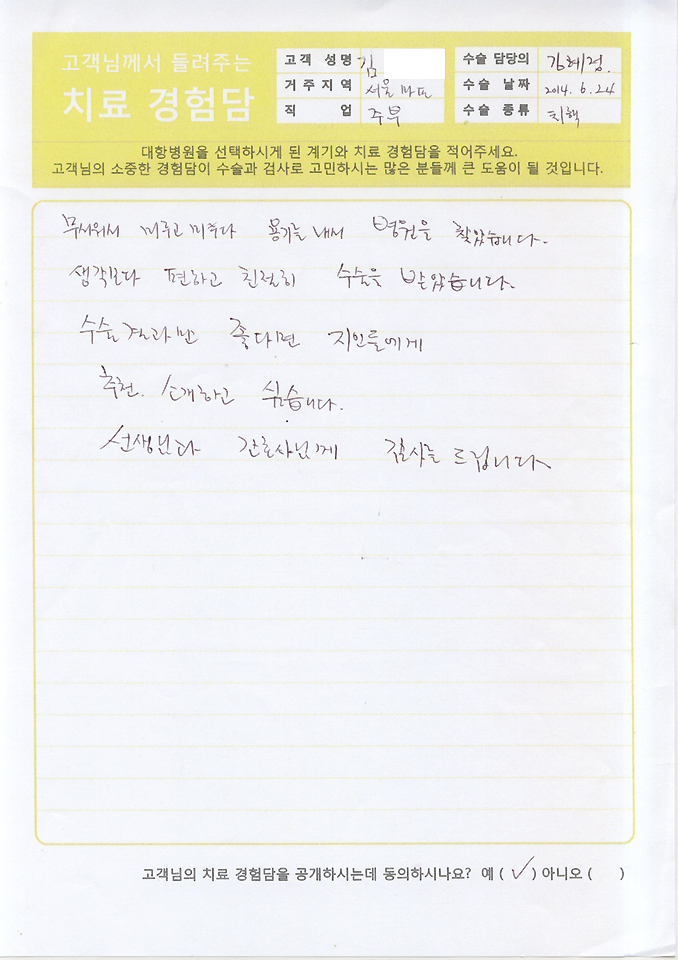 고객님께서 들려주는
치료 경험담
고객 성명 김
거주지역 서울 마포
직 업 주부
수술 담당의 김혜정.
수술 날짜 2014. 6. 24
수술 종류 치핵
대항병원을 선택하시게 된 계기와 치료 경험담을 적어주세요.
고객님의 소중한 경험담이 수술과 검사로 고민하시는 많은 분들께 큰 도움이 될 것입니다.
무서워서 미루고 미루다 용기를 내서 병원을 찾았습니다.
생각보다 편하고 친절히 수술을 받았습니다.
수술 결과만 좋다면 지인들에게
추천. 소개하고 싶습니다.
선생님과 간호사님께 감사를 드립니다.
고객님의 치료 경험담을 공개하시는데 동의하시나요? 예 ( ✓ ) 아니오 ( )